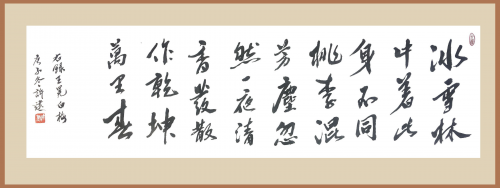 冰雪林
中着此
身不同
桃李混
芳塵忽
然一夜清
香發散
作乾坤
萬里春
右録王冕白梅
庚子冬許